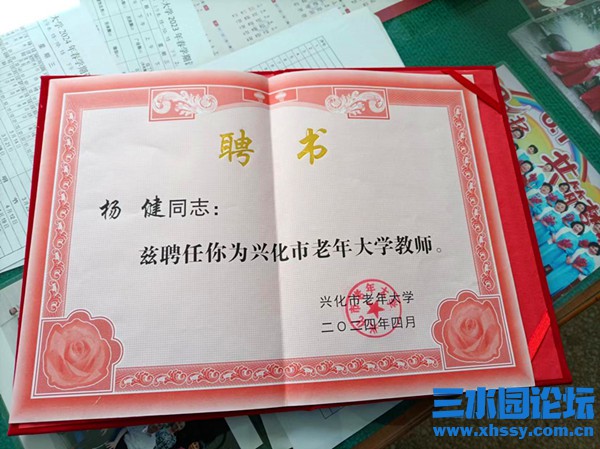 聘 书
杨 健同志:
兹聘任你为兴化市老年大学教师。
兴化市老年大学
二〇二四年四月
三水园论坛
www.xhssy.com.cn